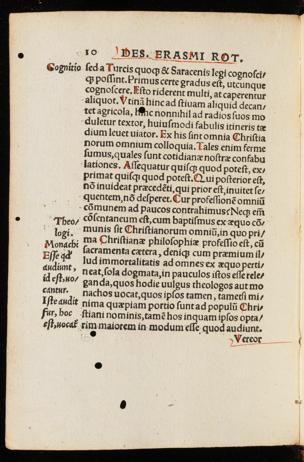 10 DES. ERASMI ROT.
Cognitio
sed a Turcis quoq; & Saracenis legi cognosci/
q; possint. Primus certe gradus est, utcunque
cognoscere. Esto riderent multi, at caperentur
aliquot. Utinã hinc ad stiuam aliquid decan/
tet agricola, hinc nonnihil ad radios suos mo
duletur textor, huiusmodi fabulis itineris tæ
dium leuet uiator. Ex his sint omnia Christia
norum omnium colloquia. Tales enim ferme
sumus, quales sunt cotidianæ nostræ confabu
lationes. Assequatur quisq; quod potest, ex/
primat quisq; quod potest. Qui posterior est,
nõ inuideat præcedẽti, qui prior est, inuitet se/
quentem, nõ desperet. Cur professionẽ omniũ
cõmunem ad paucos contrahimus? Neq; em̃
cõsentaneum est, cum baptismus ex æquo cõ/
munis sit Christianorum omniũ, in quo pri/
ma Christianæ philosophiæ professio est, cũ
sacramenta cætera, deniq; cum præmium il/
lud immortalitatis ad omnes ex æquo perti/
neat, sola dogmata, in pauculos istos esse rele/
ganda, quos hodie uulgus theologos aut mo
nachos uocat, quos ipsos tamen, tametsi mi/
nima quæpiam portio sunt ad populũ Chri/
stiani nominis, tamẽ hos inquam ipsos opta/
rim maiorem in modum esse quod audiunt.
Theo/
logi.
Monachi
Esse qd̃
audiunt,
id est, uo/
cantur.
Iste audit
fur, hoc
est, uocat̃
Vereor